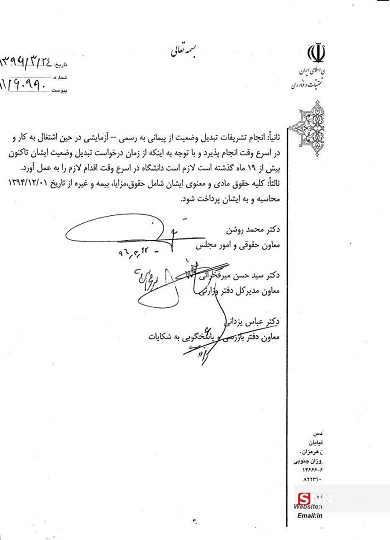 بسمه تعالی
تاریخ: ۱۳۹۶/۳/۲۴
شماره
پیوست
ی اسلامی ایران
تحقیقات و فناوری
ثانیاً: انجام تشریفات تبدیل وضعیت از پیمانی به رسمی – آزمایشی در حین اشتغال به کار و
در اسرع وقت انجام پذیرد و با توجه به اینکه از زمان درخواست تبدیل وضعیت ایشان تاکنون
بیش از ۱۹ ماه گذشته است لازم است دانشگاه در اسرع وقت اقدام لازم را به عمل آورد.
ثالثاً: کلیه حقوق مادی و معنوی ایشان شامل حقوق،مزایا، بیمه و غیره از تاریخ ۱۳۹۴/۱۲/۰۱
محاسبه و به ایشان پرداخت شود.
دکتر محمد روشن
معاون حقوقی و امور مجلس
دکتر سید حسن میرفخرائی
معاون مدیرکل دفتر وزارتی
دکتر عباس یزدانی
معاون دفتر بازرسی و پاسخگویی به شکایات
دس
خیابان
ن هرمزان،
روزان جنوبی
۱۴۶۶۶-۶
۸۲۲۳۱۰
Website:
Email:in